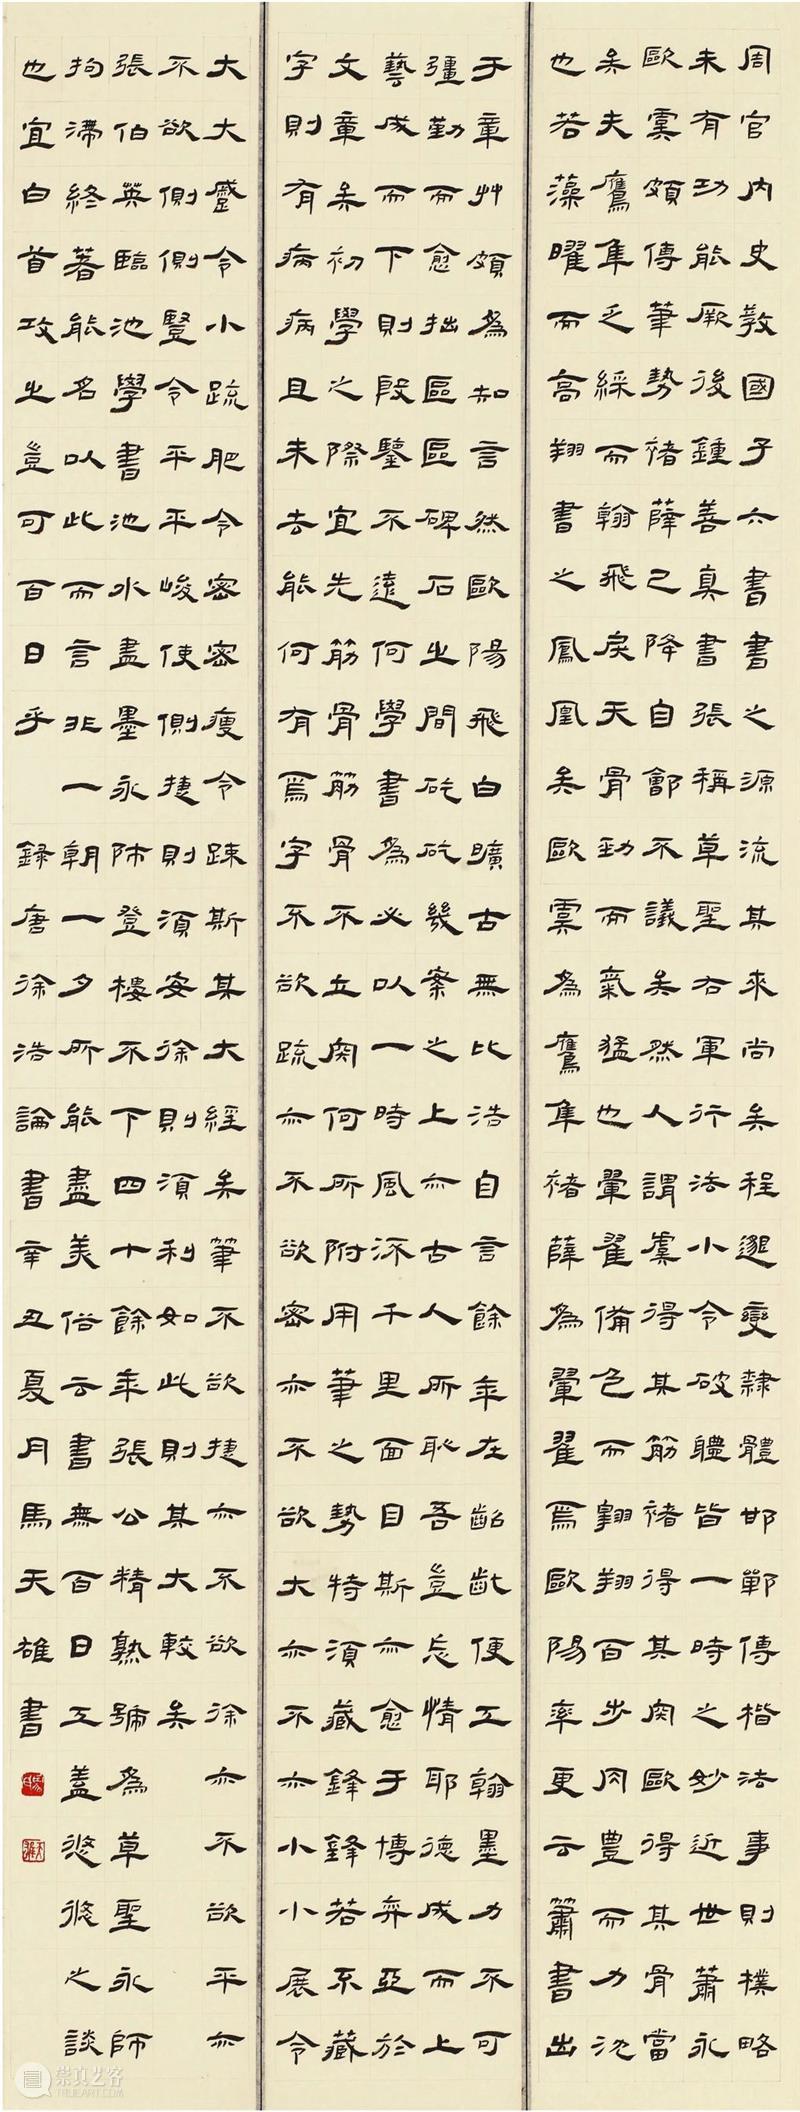 周官內史教國子六書書之源流其來尚矣程邈變隸體邯鄲傳楷法事則樸略
未有功能厥後鍾善真書張稱草聖右軍行法小令破體皆一時之妙近世蕭永
歐虞頗傳筆勢褚薛已降自鄶不議矣然人謂虞得其筋褚得其肉歐得其骨當
矣夫鷹隼乏綵而翰飛戾天骨勁而氣猛也翬翟備色而翱翔百步肉豐而力沈
也若藻曜而高翔書之鳳凰矣歐虞為鷹隼褚薛為翬翟焉歐陽率更云蕭書出
于章艸頗為知言然歐陽飛白曠古無比浩自言餘年在齠齔便工翰墨力不可
彊勤而愈拙區區碑石之間矻矻幾案之上亦古人所恥吾豈忘情耶德成而上
藝成而下則殷鑒不遠何學書為必以一時風流千里面目斯亦愈于博弈亞於
文章矣初學之際宜先筋骨筋骨不立肉何所附用筆之勢特須藏鋒鋒若不藏
字則有病病且未去能何有焉字不欲疏亦不欲密亦不欲大亦不亦小小展令
大大蹙令小疏肥令密密瘦令疎斯其大經矣筆不欲捷亦不欲徐亦不欲平亦
不欲側側豎令平平峻使側捷則須安徐則須利如此則其大較矣
張伯英臨池學書池水盡墨永師登樓不下四十餘年張公精熟號為草聖永師
拘滯終著能名以此而言非一朝一夕所能盡美俗云書無百日工蓋悠悠之談
也宜白首攻之豈可百日乎 錄唐徐浩論書辛丑夏月馬天雄書
崇真艺客